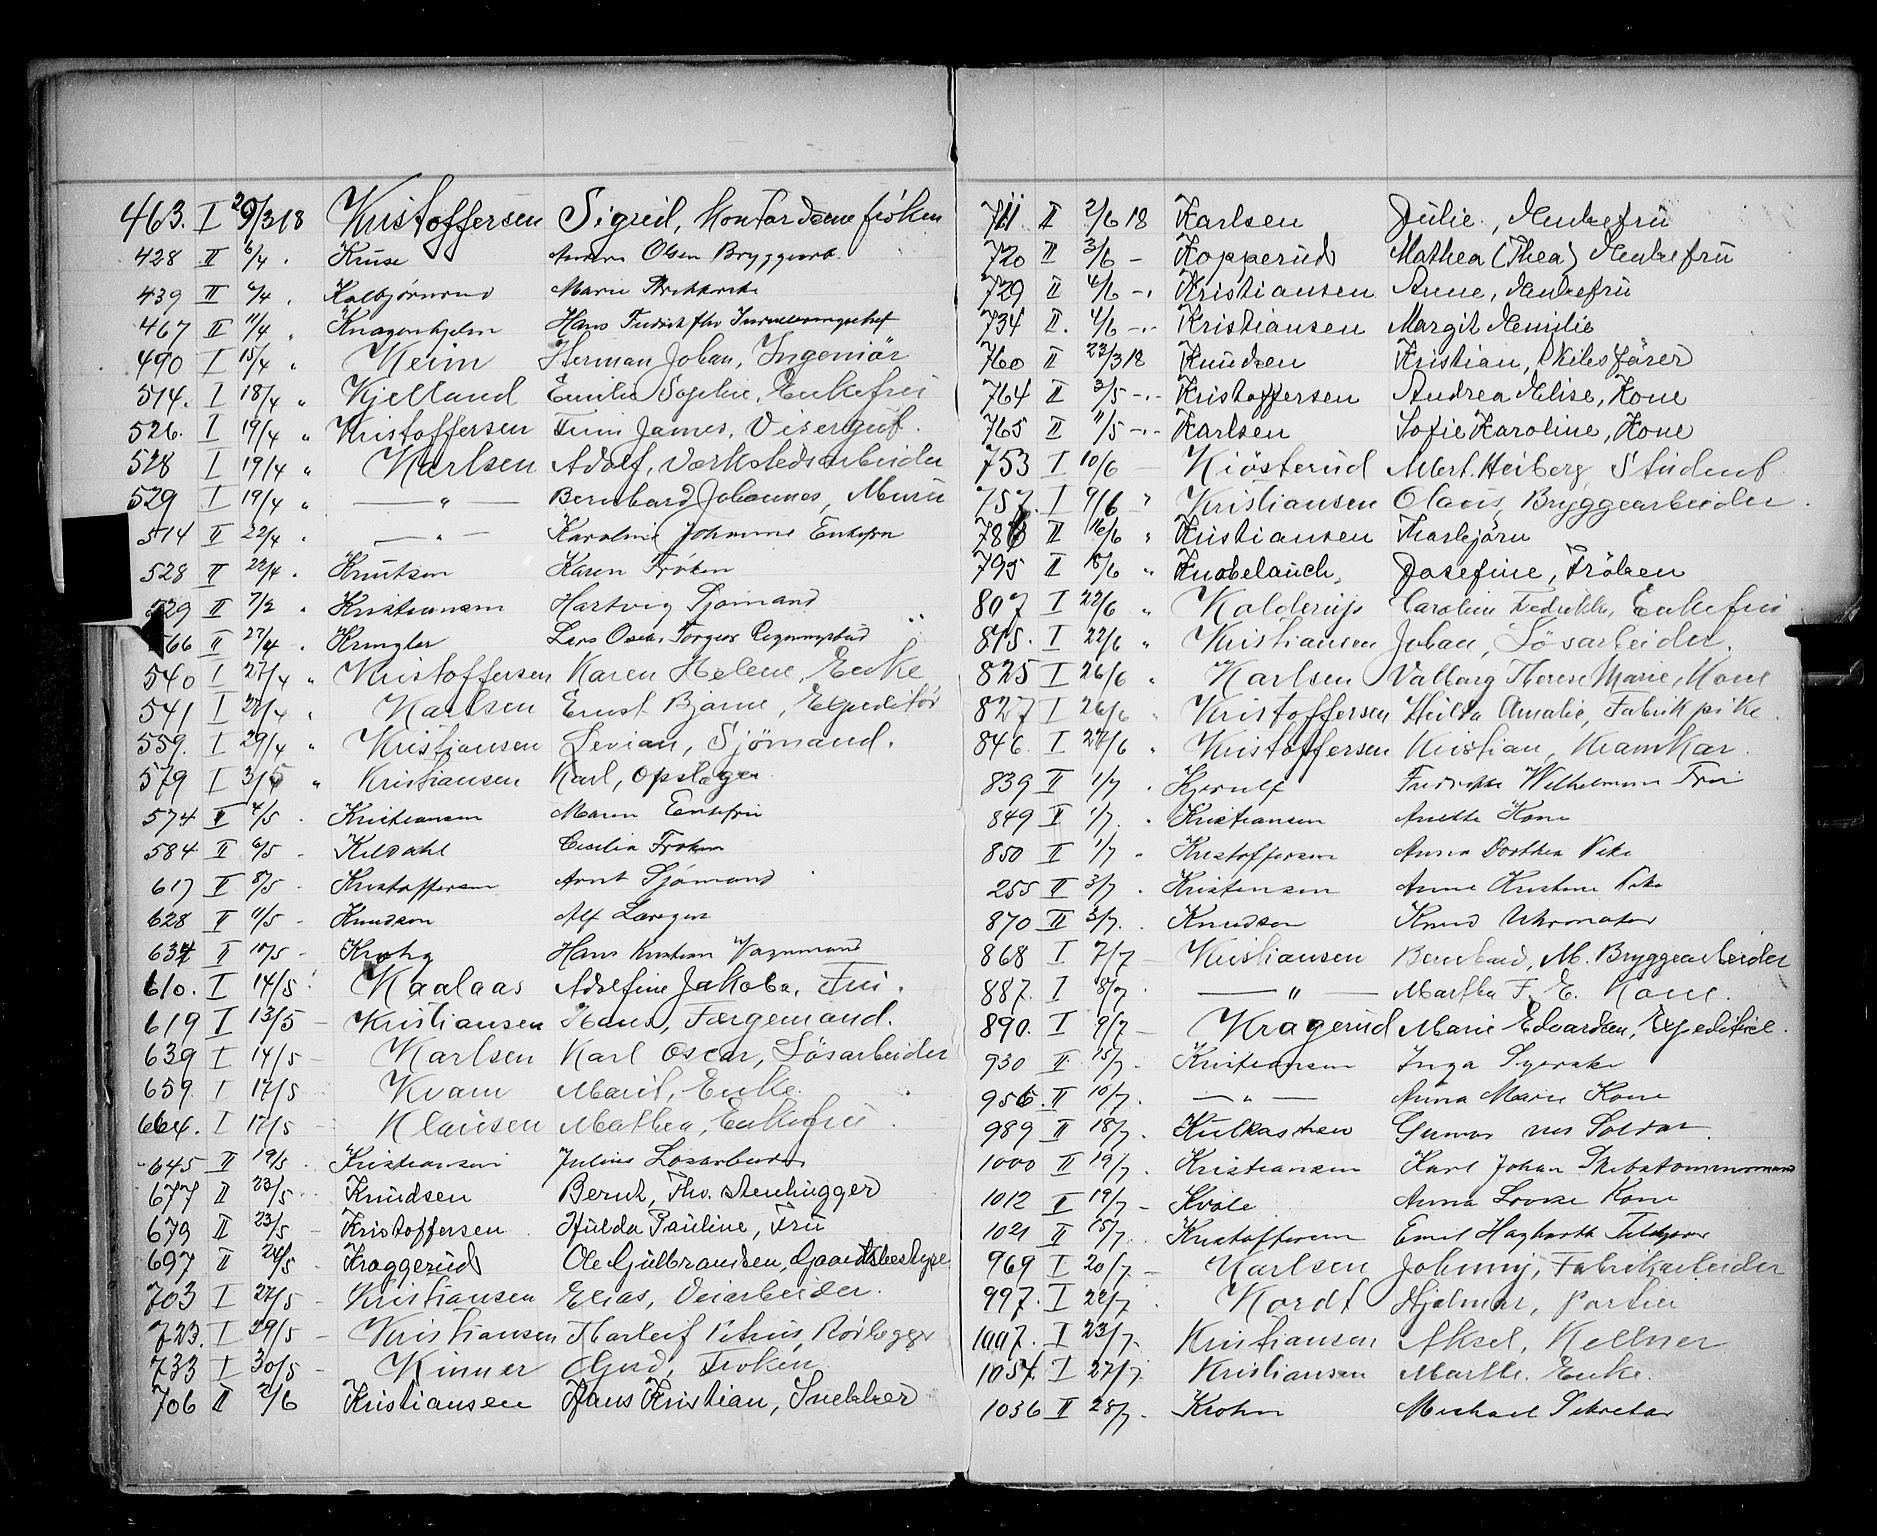 463. I 29/3 18 Kristoffersen Sigrid, Kontordame frøken
428 II 6/4 . Kruse Olsen Bryggearb.
439 II 6/4 . Kalbjørnsrud Marie
467 II 11/4 " Knagenhjelm Hans
490 I 15/4 " Keim Herman Johan, Ingeniør
514. I 18/4 " Kjelland Emilie Sophie, Enkefru
526. I 19/4 " Kristoffersen Finn James, Visergut.
528 I 19/4 " Karlsen Adolf, Værkstedsarbeider
529 I 19/4 " — " — Bernhard Johannes, Murer
514 II 22/4 . — " — Karoline Johanne Enkefru
528 II 22/4 . Knutsen Karen Frøken
529 II 7/2 " Kristiansen Hartvig Sjømand
566 II 27/4 . Kringler Lars Oscar
540 I 27/4 " Kristoffersen Karen Helene, Enke
541 I 28/4 " Karlsen Ernst Bjarne, Expeditør
559. I 29/4 " Kristiansen Levian, Sjømand.
579 I 3/5 " Kristiansen Karl, Opslager
574 II 4/5 . Kristiansen Maren Enkefru
584 II 6/5 - Kildahl Cecilia Frøken
617 II 8/5 . Kristoffersen Arnt Sjømand
628 II 11/5 - Knudson Alf
634 II 10/5 - Krohg Hans Kristian Vognmand
610. I 14/5 . Kaalaas Adolfine Jakoba, Fru.
619 I 13/5 - Kristiansen Hans, Færgemand.
639 I 14/5 - Karlsen Karl Oscar, Løsarbeider
659 I 17/5 Kvam Marit, Enke.
664. I 17/5 - Klausen Mathea, Enkefru
645 II 19/5 . Kristiansen Julius Løsarbeider
677 II 23/5 . Knudsen Bernt, Tho. Stenhugger
673 II 23/5 - Kristoffersen Hulda Pauline, Fru
697 II 24/5 . Kraggerud Ole Gulbrandsen, Gaardsbestyrer
703 I 27/5 - Kristiansen Elias, Veiarbeider.
723. I 29/5 - Kristiansen Tharleif Petrus, Rørlegger
733 I 30/5 - Kinner Gud, Frøken
706 II 2/6 Kristiansen Hans Kristian, Snekker
711 II 2/6 18 Karlsen Julie, Enkefru
720 II 3/6 - Kopperud Mathea (Thea) Enkefru
729 II 4/6 -. Kristiansen Anne, Enkefru
734 II. 4/6 -.- Kristiansen Margit Emilie
760 II 23/3 18 Knudsen Kristian, Skibsfører
764 II 3/5 -.- Kristoffersen Andrea Elise, Kone
765 II 11/5 -.- Karlsen Sofie Karoline, Kone
753 I 10/6 Kiøsterud Mert. Heiberg, Student
757. I 9/6 " Kristiansen Olaus, Bryggearbeider.
786 II 16/6 " Kristiansen Thorbjørn
795 II 18/6 " Knobelauch, Josefine, Frøken
807 I 22/6 " Kolderup Caroline Fredrikke, Enkefru
815. I 22/6 " Kristiansen Johan, Løsarbeider.
825 I 26/6 " Karlsen Valborg Therese Marie, Kone
827 I 26/6 " Kristoffersen Hilda Amalie, Fabrikpike
846. I 27/6 " Kristoffersen Kristian, Kramkar.
839 II 1/7 . Kjerulf Fredrikke Wilhelmine Fru
849 II 1/7. . Kristiansen Anette Kone
850 II 1/7 " Kristoffersen Anna Dorthea Pike
255 II 3/7 . Kristensen Anne Kristine Pike
870 II 3/7. . Knudsen Knud
868 I 7/7 - Kristiansen Bernhard, M. Bryggearbeider
887. I 8/7 . — " — Martha F. E. Kone.
890. I 9/7 - Kragerud Marie Edvardsen, Expeditrice.
930 II 15/7. Kristiansen Inga Syerske
956. II 10/7. — " — Anna Marie Kone
989 II 18/7. Kulkastren Gunnar Soldat
1000 II 19/7. Kristiansen Karl Johan Skibstømmermand
1012 II 19/7 - Kvale Anna Lovise Kone
1021 II 15/7 . Kristoffersen Emil Hagbarth
969 I 20/7 - Karlsen Johnny, Fabrikarbeider
997. I 22/7 . Kordt Hjalmar, Portier
1007. I 23/7. Kristiansen Aksel, Kellner
1057. I 27/7. Kristiansen Marthe. Enke.
1036 II 28/7. Krohn Michael Sekretær